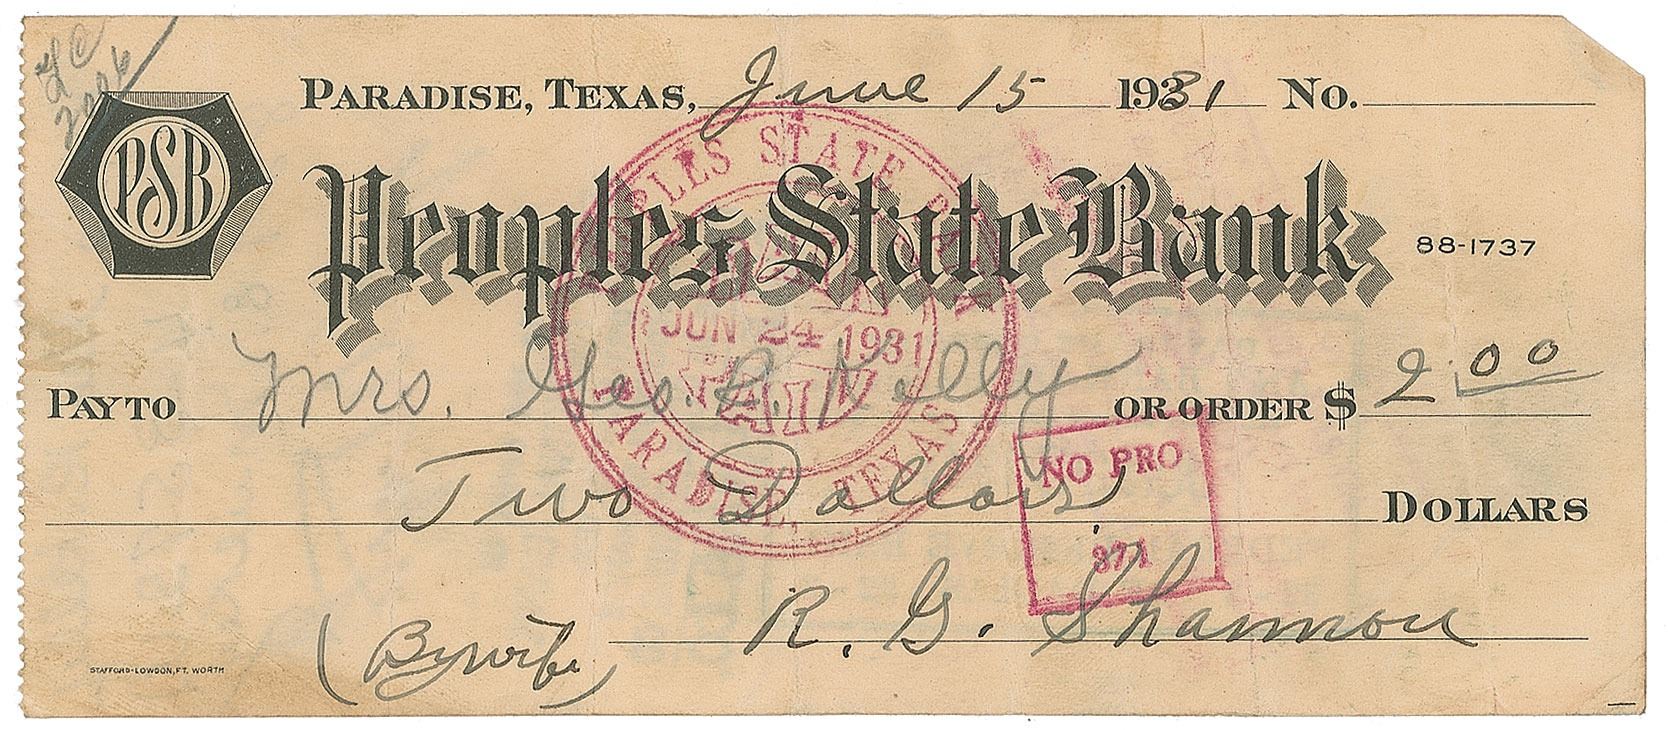 PARADISE, TEXAS, June 15 1931 NO.
PSB
Peoples State Bank 88-1737
PEOPLES STATE BANK
JUN 24 1931
PAID
PARADISE, TEXAS
PAY TO Mrs. Geo. R. Kelly OR ORDER $ 2.00
Two Dollars DOLLARS
NO PRO
371
R. G. Shannon
(By wife)
STAFFORD-LOWDON, FT. WORTH